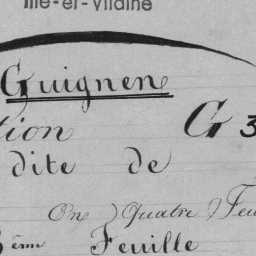 Ille-et-Vilaine
Guignen
tion G 3
dite de
En Quatre Feu
3ème Feuille